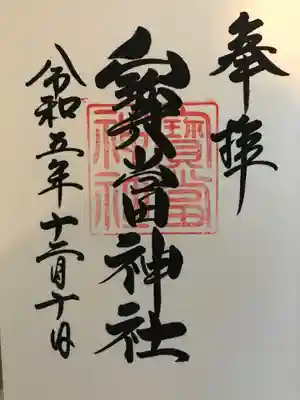 奉拝
寳當神社
寶當神社
令和五年十二月十日